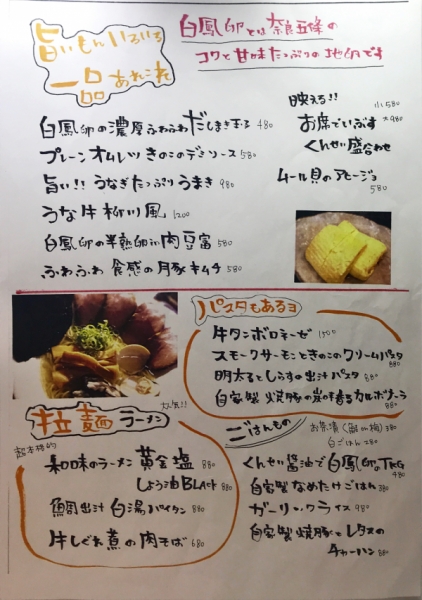 旨いもんいろいろ
一品あれこれ
白鳳卵とは奈良五條の
コクと甘味たっぷりの地卵です
白鳳卵の濃厚ふわふわだしまき玉子 480
プレーンオムレツきのこのデミソース 580
旨い!! うなぎたっぷりうまき 980
うな牛柳川風 1200
白鳳卵の半熟卵in肉豆富 580
ふわふわ 食感の豚キムチ 580
映える!! 小580
お席でいぶす 大980
くんせい盛合わせ
ムール貝のアヒージョ
580
パスタもあるヨ
牛タンボロネーゼ
スモークサーモンときのこのクリームパスタ 880
明太子としらすの出汁パスタ 880
自家製 焼豚の炭の香るカルボナーラ 880
拉麺 ラーメン
人気!!
超本格的
和味のラーメン 黄金塩 880
しょう油BLAck 880
鯛出汁 白湯パイタン 880
牛しぐれ煮の肉そば 680
ごはんもの
お茶漬(鮭or梅)380
白ごはん 280
くんせい醤油で白鳳卵のTKG
480
自家製なめたけごはん 380
ガーリックライス 980
自家製焼豚とレタスの
チャーハン 880